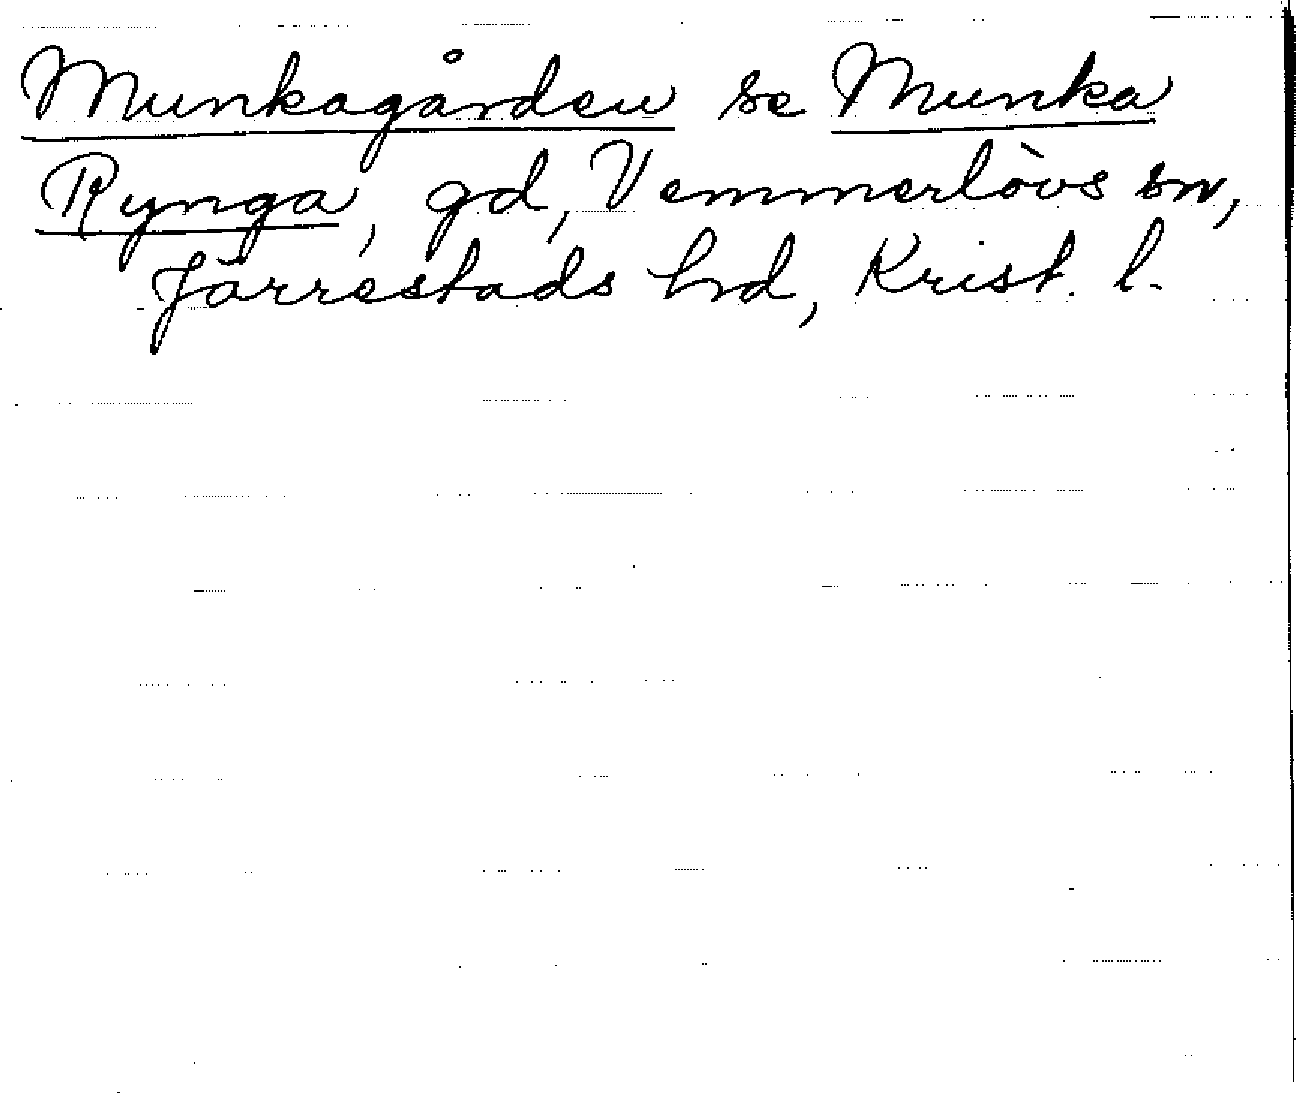 Munkagården se Munka
Rynga, gd, Vemmerlövs sn,
Järrestads hd, Krist. l.